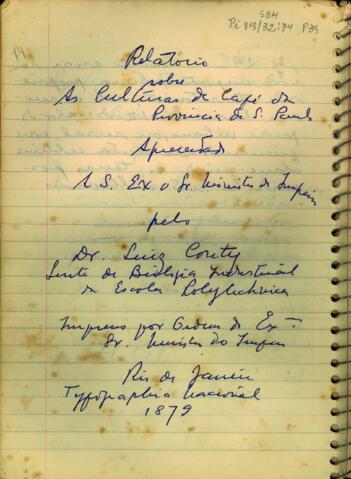 SBH
Pi 818/32:74 P39
Relatório
sobre
As Culturas de Café da
Provincia de S. Paulo
Apresentado
A S. Ex. o Sr. Ministro do Imperio
pelo
Dr. Luiz Couty
Lente de Biologia Industrial
na Escola Polytechnica
Impresso por Ordem de Exmo
Sr. Ministro do Imperio
Rio de Janeiro
Typographia Nacional
1879